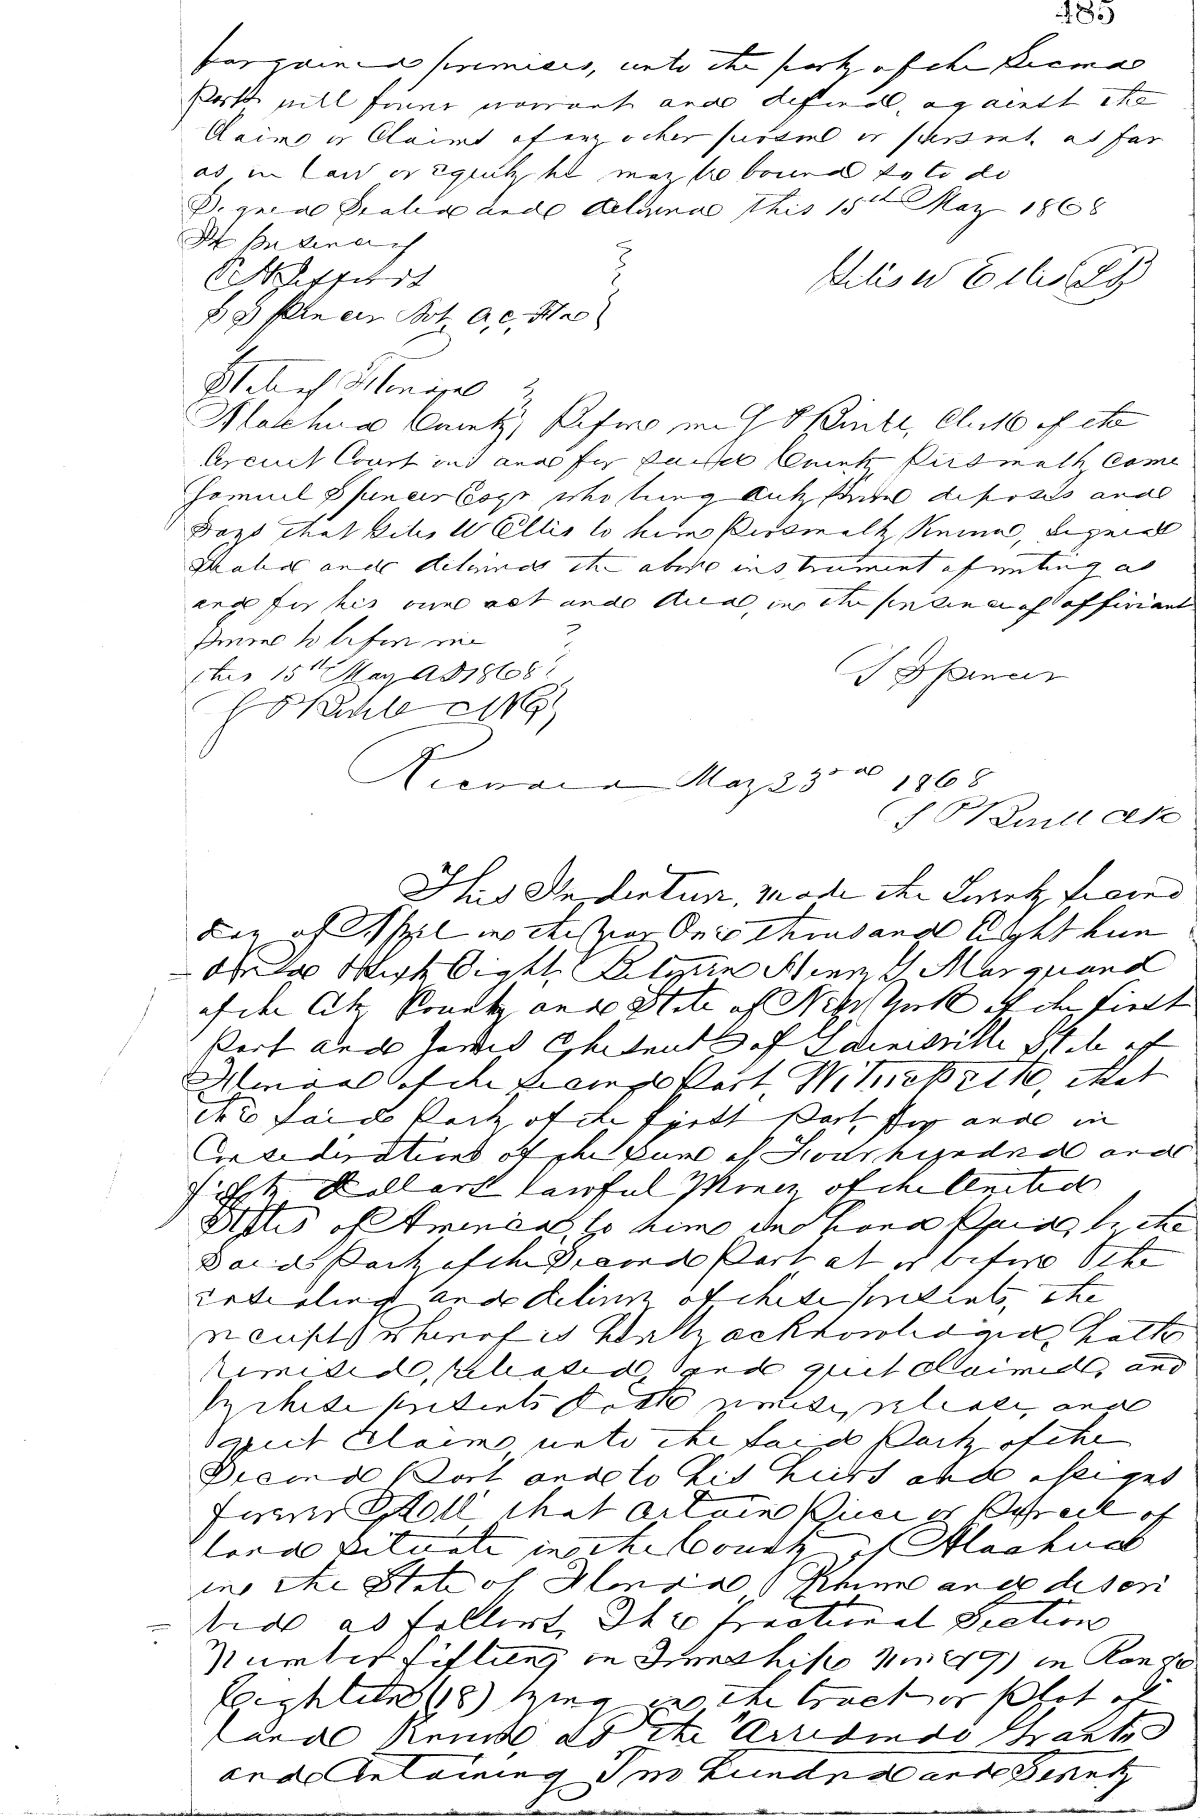 485
bargained premises, unto the party of the Second
Part will forever warrant and defend, against the
Claim or Claims of any other person or persons, as far
as in law or equity he may be bound so to do
Signed Sealed and delivered this 15th May 1868
In presence of
Giles W Ellis LS
S Spencer Not. A, C, Fla
State of Florida
Alachua County, Before me J O Clerk of the
Circuit Court in and for said County Personally came
Samuel Spencer Esqr who being duly sworn deposes and
Says that Giles W Ellis to him Personally Known, Signed
Sealed and delivered the above instrument of writing as
and for his own act and deed, in the presence of affiiant
Sworn to before me
this 15th May AD 1868
S Spencer
Recorded May 23rd 1868
This Indenture, made the Twenty Second
day of April in the Year One thousand Eight hun
dred Sixty Eight, Between Henry G Marquand
of the City County and State of New York of the first
Part and James Chesnut of Gainisville State of
Florida of the Second Part, Witnesseth, that
the Said Party of the first Part, for and in
Consideration of the Sum of Four hundred and
fifty Dollars lawful Money of the United
States of America, to him in hand Paid, by the
Said Party of the Second Part at or before the
ensealing and delivery of these presents, the
receipt whereof is hereby acknowledged, hath
remised, released, and quit claimed, and
by these presents doth remise, release, and
quit Claim, unto the Said Party of the
Second Part and to his heirs and assigns
forever All that certain Piece or Parcel of
land situate in the County of Alachua
in the State of Florida, Known and descri
bed as follows, The fractional Section
Number fifteen, in Township Nine (9) in Range
Eighteen (18) lying in the tract or plot of
land Known as the "Arredondo Grant"
and Containing Two hundred and Seventy